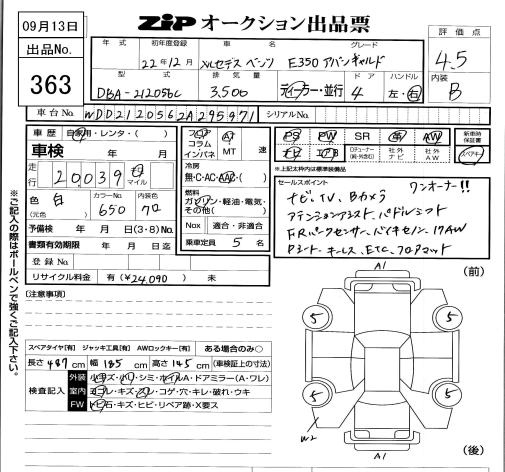 09月13日
出品No.
363
ZIP オークション出品票
年式 初年度登録 車名 グレード
22年12月 メルセデス ベンツ E350 アバンギャルド
型式 排気量 ドア ハンドル
DBA-212056C 3,500 ディーラー・並行 4 左・右
評価点
4.5
内装
B
車台No. WDD2120562A295971 シリアルNo.
車歴 自家用・レンタ・( )
車検 年 月 日
走行 20,039 km マイル
色 (元色) 白 カラーNo. 650 内装色 70
予備検 年 月 日(3・8)No.
書類有効期限 年 月 日迄
登録No.
リサイクル料金 有(¥24,090) 未
フロア コラム インパネ AT MT 速
冷房
無・C・AC・AAC・( )
燃料
ガソリン・軽油・電気・その他( )
Nox 適合・非適合
乗車定員 5 名
PS PW SR 革 AW
社外ナビ 社外AW
新車時保証書
スペアキー
※上記太枠内は標準装備品
セールスポイント ワンオーナー!!
ナビ、TV、Bカメラ
アテンションアシスト、パドルシフト
F.Rパークセンサー、バイキセノン、17AW
Pシート、キーレス、ETC、フロアマット
※ご記入の際はボールペンで強くご記入下さい。
[注意事項]
スペアタイヤ[有] ジャッキ工具[有] AWロックキー[有] ある場合のみ○
長さ 487 cm 幅 185 cm 高さ 145 cm (車検証上の寸法)
検査記入
外装 小キズ・小凹・シミ・ホイルA・ドアミラー(A・ワレ)
室内 ヨゴレ・キズ・スレ・コゲ・穴・キレ・破れ・ウキ
FW トビ石・キズ・ヒビ・リペア跡・X要ス
A1
(前)
5
5
5
5
W2
A1
(後)